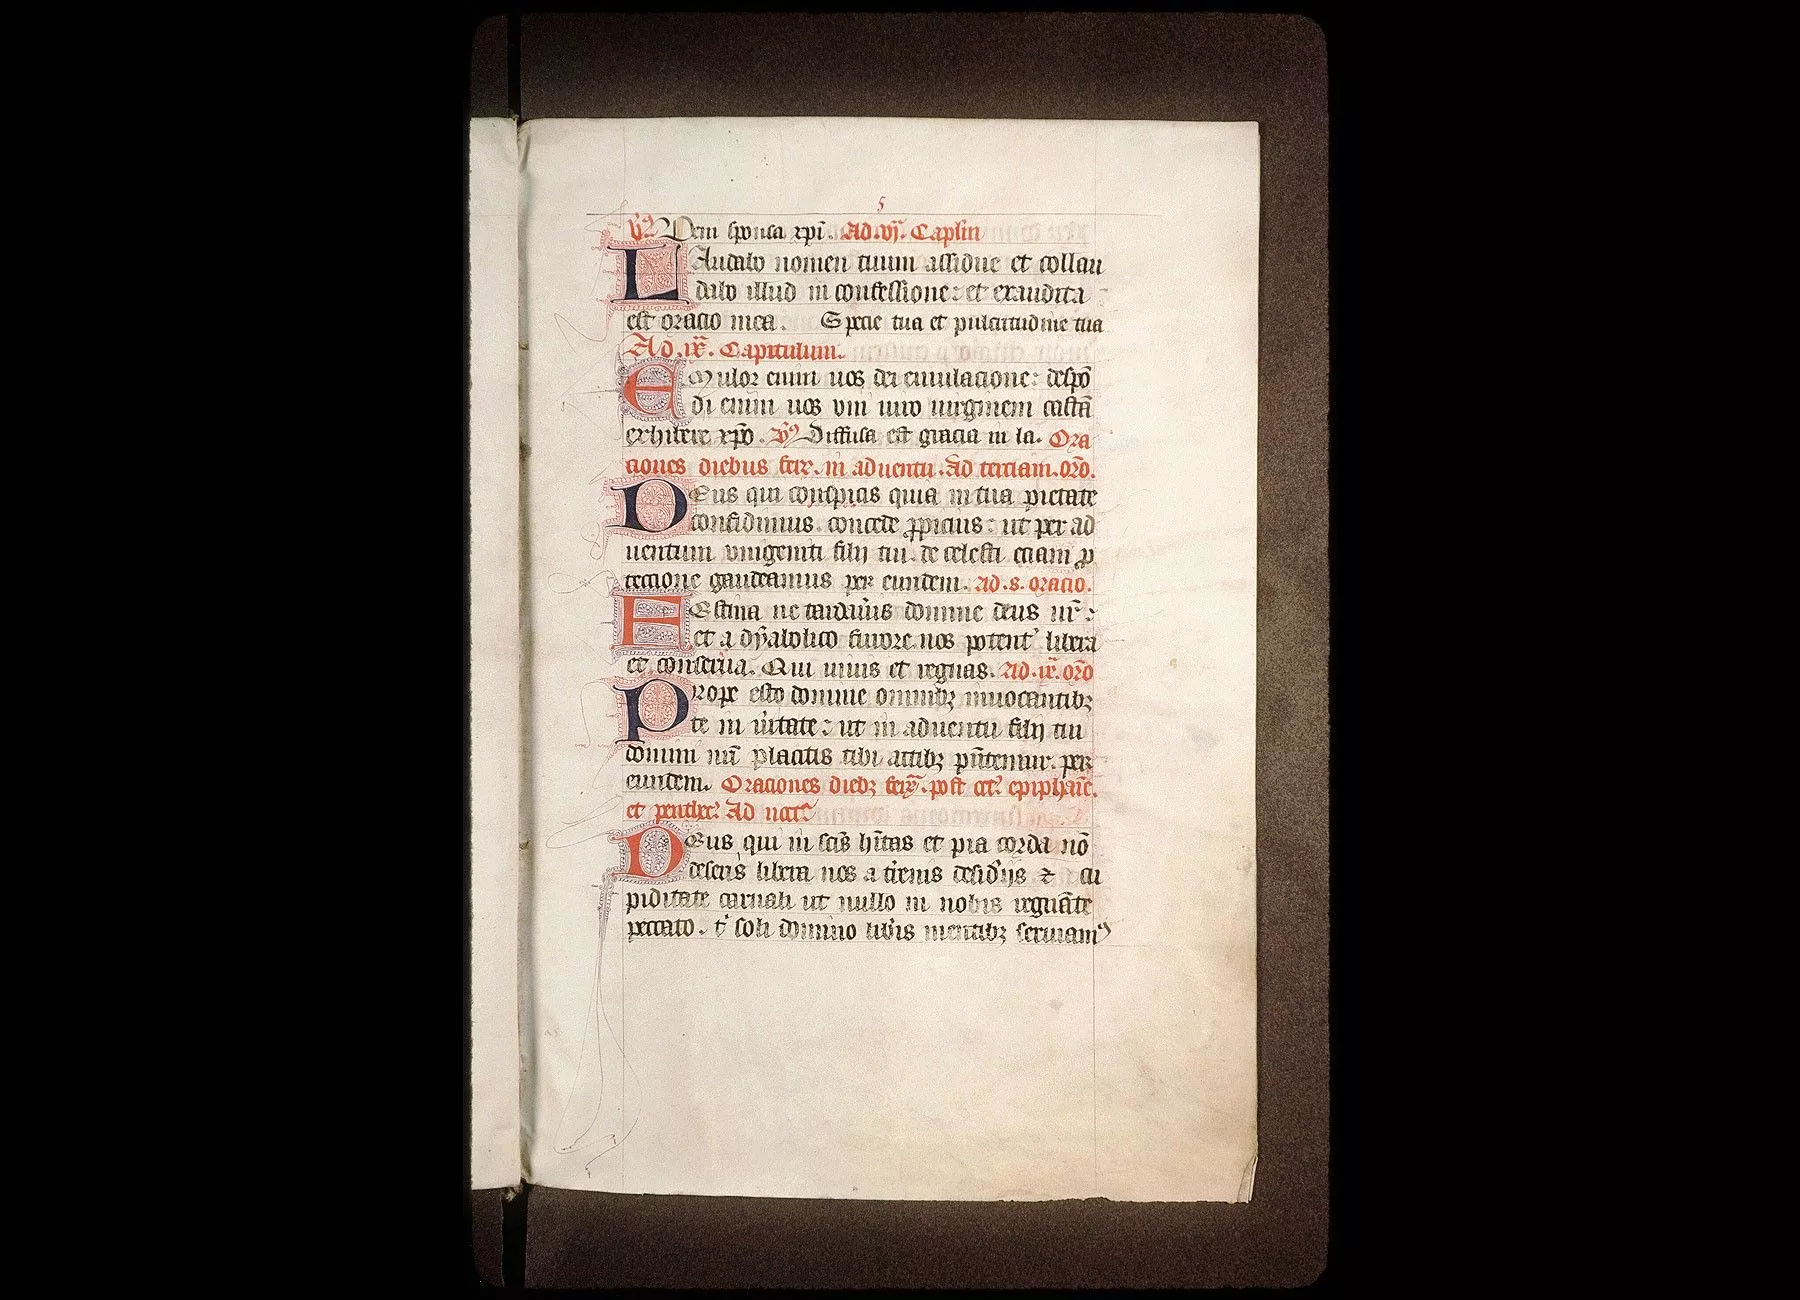 5
V9 Veni sponsa xpi. Ad. vj. Caplm
LAudabo nomen tuum assidue et collau
dabo illud in confessione: et exaudita
est oracio mea. Specie tua et pulcritudine tua
Ad. ix. Capitulum.
EMulor enim uos dei emulacione: despo̅
di enim uos vni uiro uirginem casta̅
exhibere xpo̅. V9 Diffusa est gracia in la. Ora
ciones diebus ferr. in aduentu. Ad terciam. oro̅.
DEus qui conspicis quia in tua pietate
confidimus. concede ꝓpicius: ut per ad
uentum vnigeniti filij tui. de celesti eciam ꝓ
teccione gaudeamus per eundem. Ad .s. oracio.
FEstina ne tardau̅is domine deus nr̅:
et a dyabolico furore nos potent᾽ libera
et conserua. Qui uiuis et regnas. Ad. ix. oro̅
PRope esto domine omnibꝫ inuocantibꝫ
te in u̅itate: ut in aduentu filij tui
domini nri̅ placitis tibi actibꝫ pn̅temur. per
eundem. Oraciones diebꝫ ferr. post oct᾽ epiphanie̅.
et penthec᾽ Ad noct᾽
DEus qui in scis̅ hi̅tas et pia corda no̅
deseris libera nos a tr̅enis desid᾽ijs ⁊ cu
piditate carnali ut nullo in nobis regna̅te
peccato. t᾽ soli domino lib᾽is mentibꝫ seruiam᾽